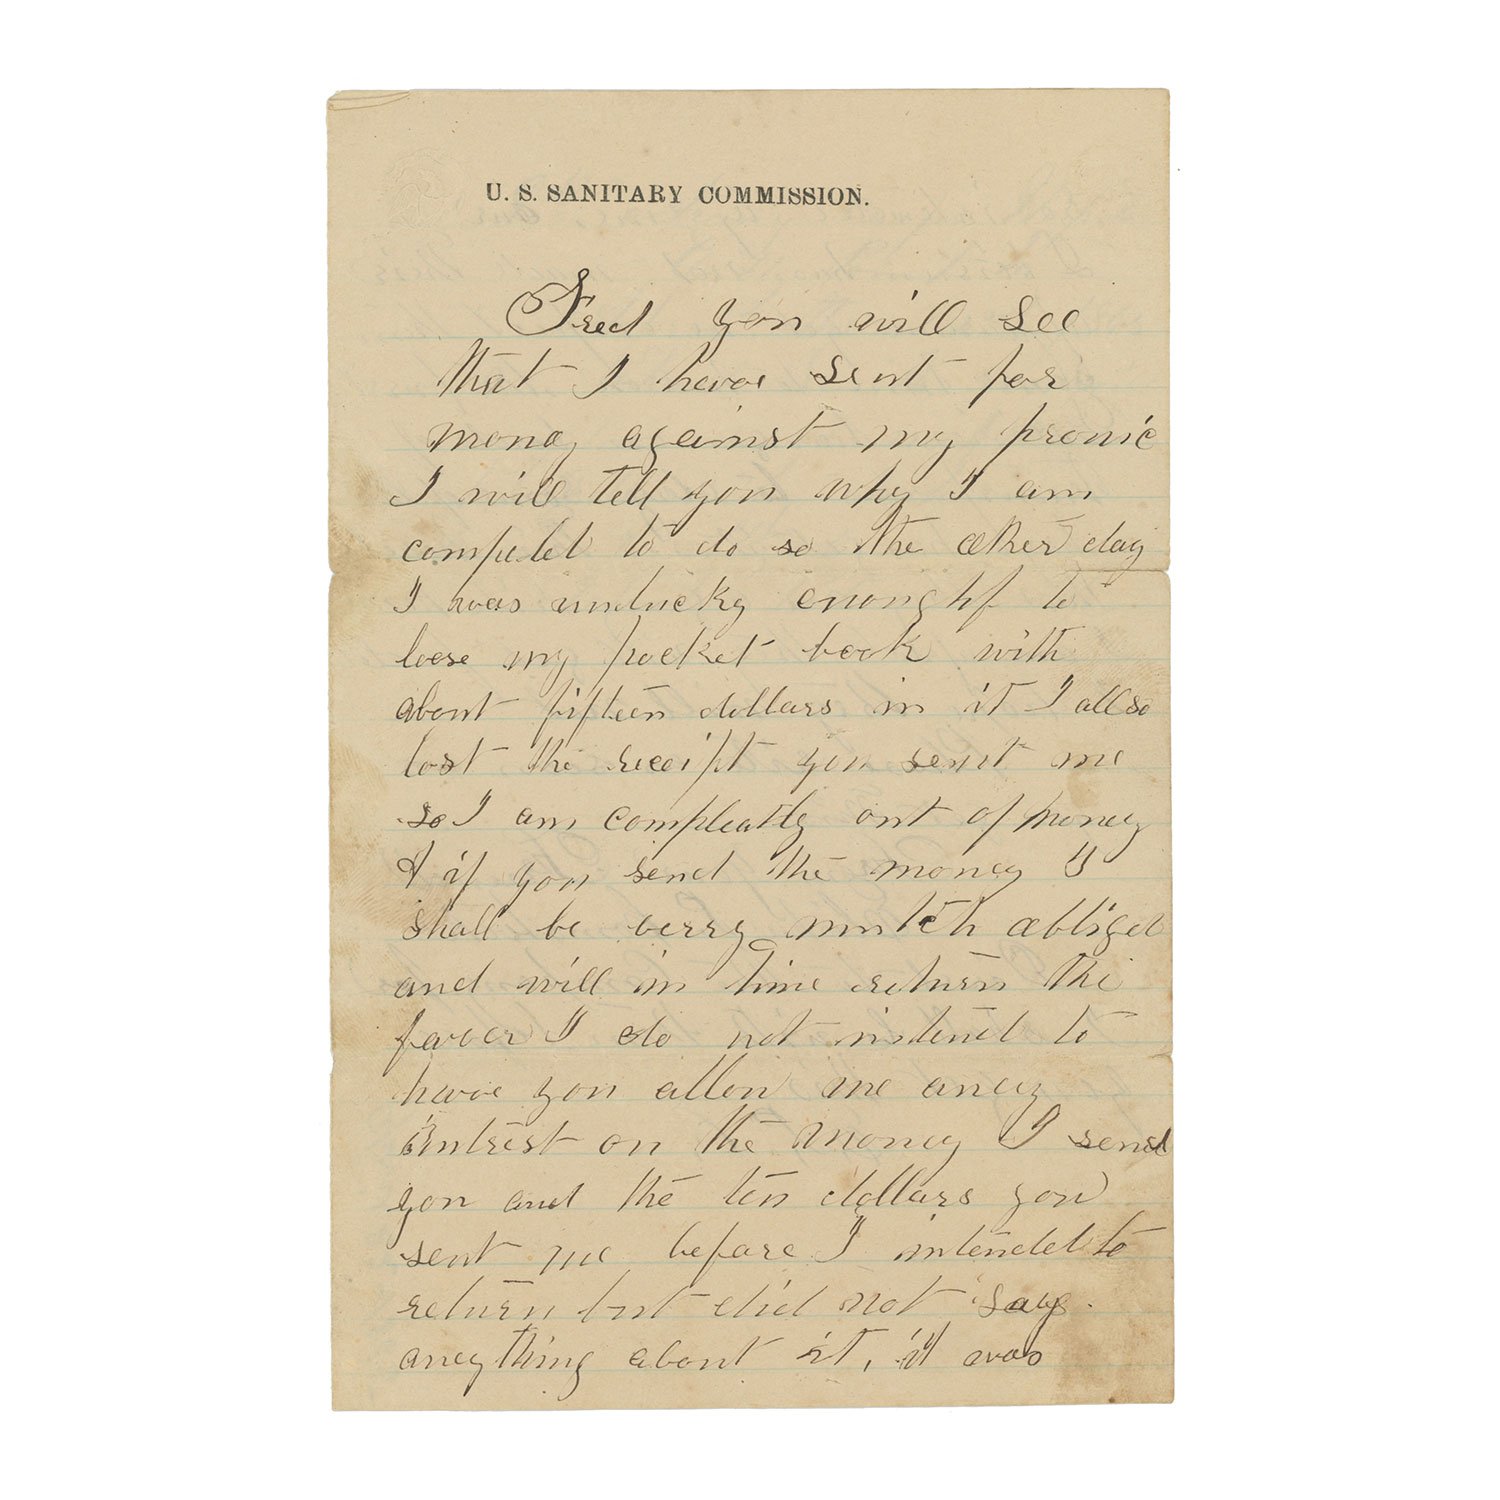 U. S. SANITARY COMMISSION.
Fred you will see
that I have sent for
money against my promic
I will tell you why I am
compelet to do so the other day
I was unlucky enoughf to
loose my pocket book with
about fifteen dollars in it I allso
lost the receipt you sent me
so I am compleatly out of money
& if you send the money I
shall be verry mutch obliged
and will in time return the
favor I do not intend to
have you allow me aney
intrest on the money I send
you and the ten dollars you
sent me before I intended to
return but did not say
aneything about it, it was